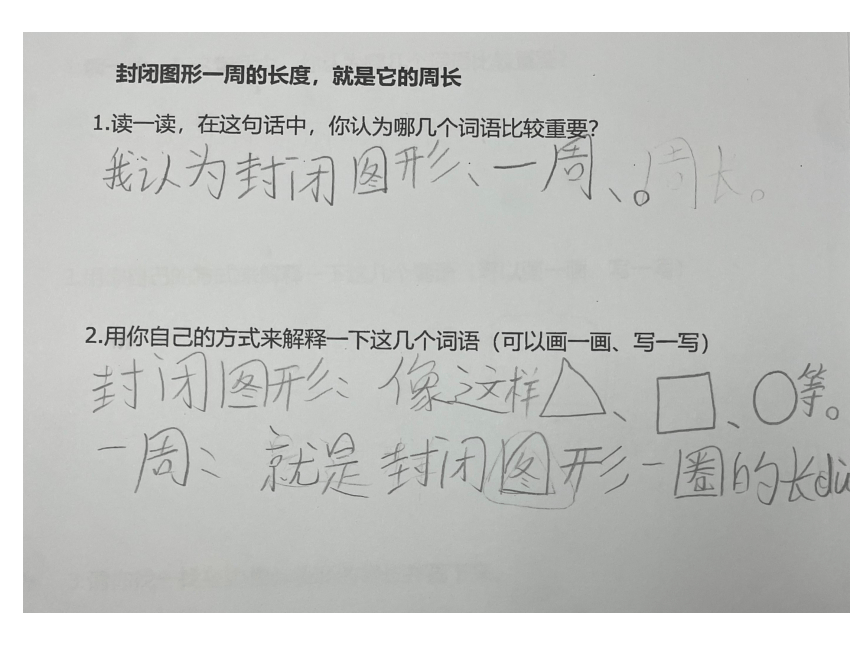 封闭图形一周的长度，就是它的周长
1.读一读，在这句话中，你认为哪几个词语比较重要?
我认为封闭图形、一周、。周长。
2.用你自己的方式来解释一下这几个词语（可以画一画、写一写）
封闭图形：像这样△、□、○等。
一周：就是封闭图形一圈的长du